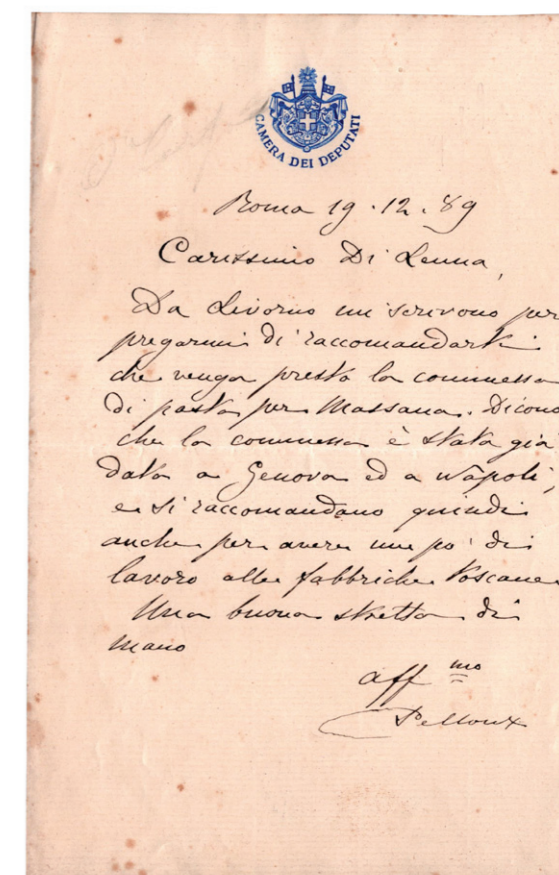 CAMERA DEI DEPUTATI
Roma 19.12.89
Carissimo Di Lenna,
Da Livorno mi scrivono per
pregarmi di raccomandarti
che venga presto la commessa
di pasta per Massaua. Dicono
che la commessa è stata già
data a Genova ed a Napoli,
e si raccomandano quindi
anche per avere un po' di
lavoro alle fabbriche toscane
Una buona stretta di
mano
aff mo
Pelloux